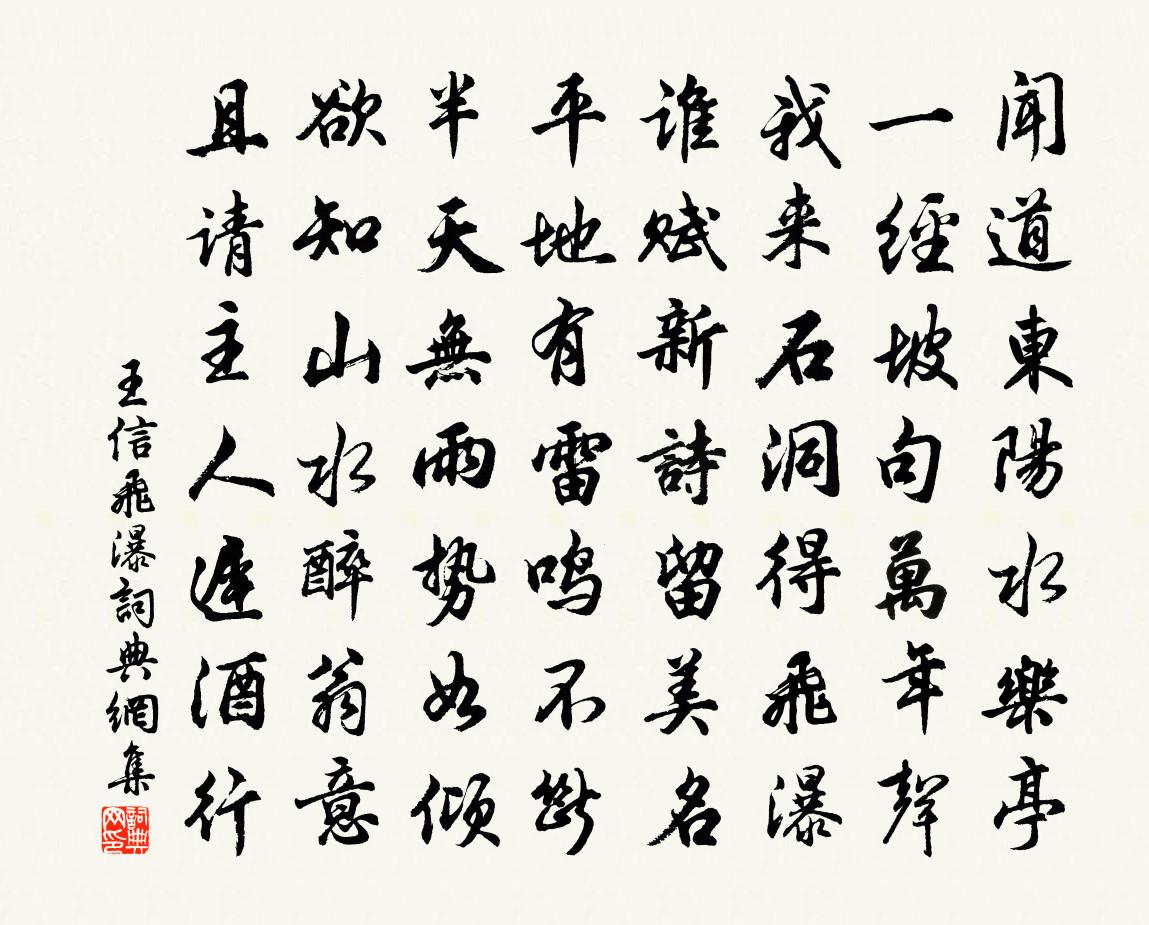 闻道東陽水樂亭
一經坡句萬年聲
我来石洞得飛瀑
谁赋新詩留美名
平地有雷鸣不斷
半天無雨势如傾
欲知山水醉翁意
且请主人遲酒行
王信飛瀑詞典網集
詞典网印